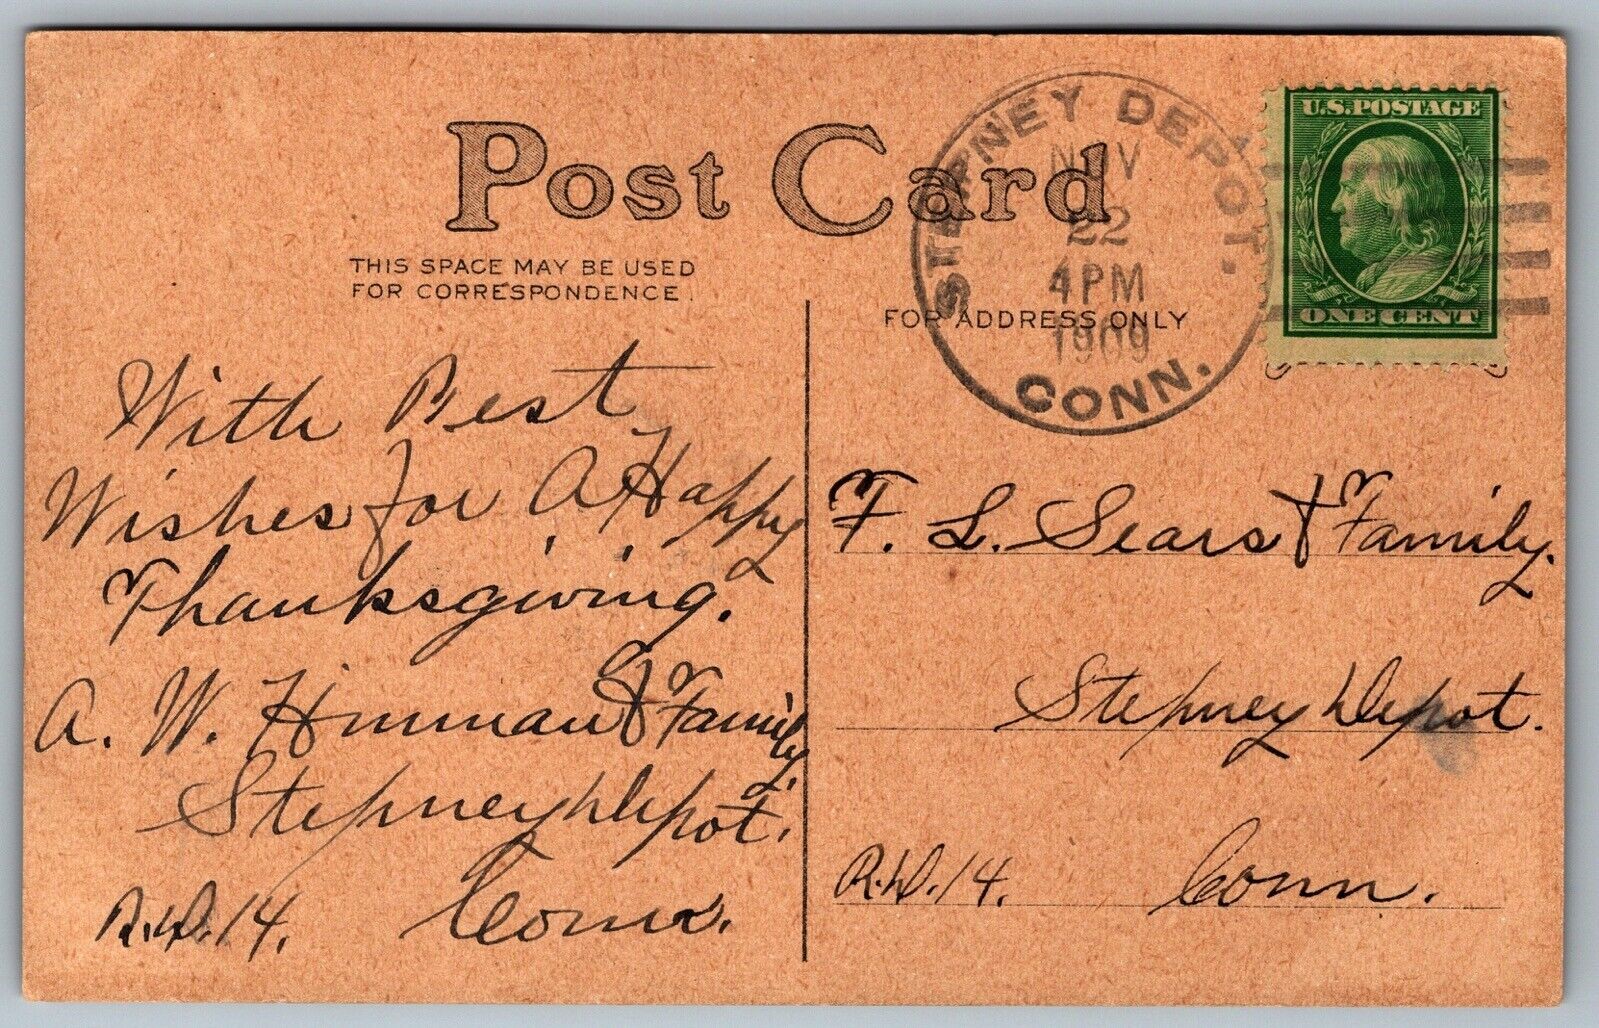 Post Card
THIS SPACE MAY BE USED
FOR CORRESPONDENCE.
FOR ADDRESS ONLY
STEPNEY DEPOT.
NOV
22
4 PM
1909
CONN.
U.S. POSTAGE
ONE CENT
With Best
Wishes for A Happy
Thanksgiving.
A. W. Hinman & Family.
Stepney Depot.
R.D. 14. Conn.
F. L. Sears & Family.
Stepney Depot.
R.D. 14. Conn.